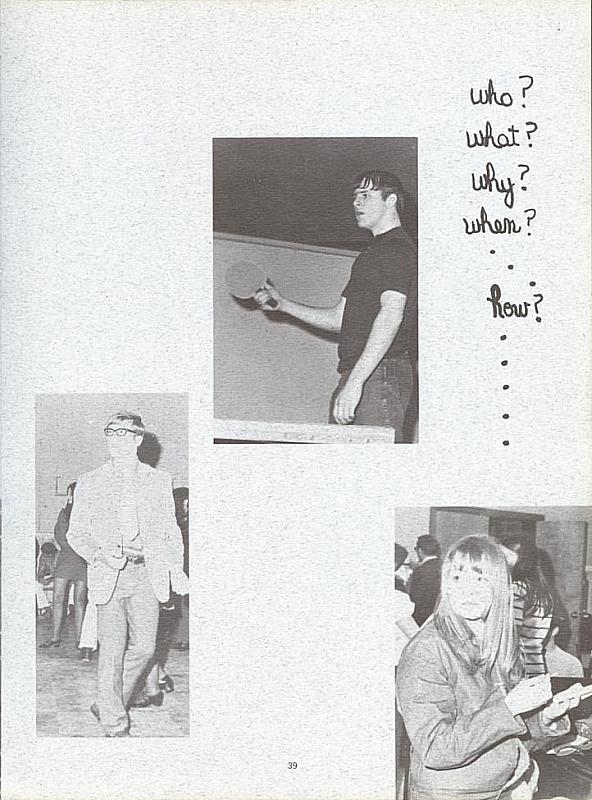 who?
what?
why?
when?
. . .
how?
. . . . .
39